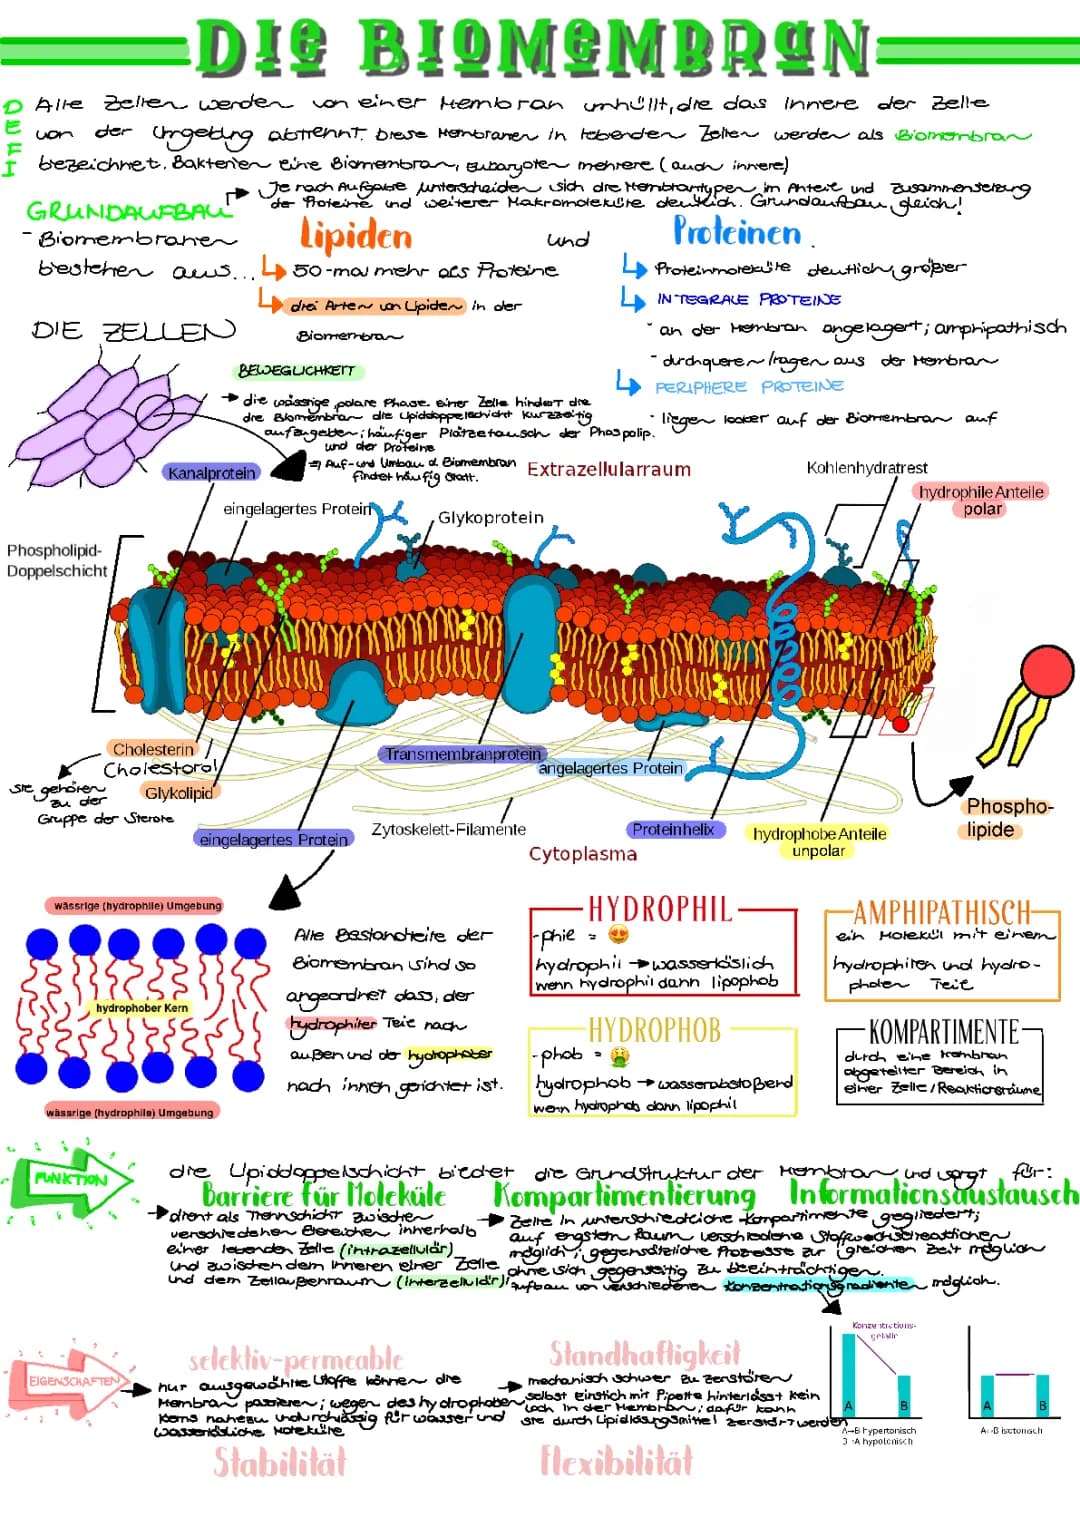 DIE BIOMEMBRAN
DEFI
Alle Zellen werden von einer Membran umhüllt, die das Innere der Zelle
von der Umgebung abtrennt. Diese Membranen in lebenden Zellen werden als Biomembran
bezeichnet. Bakterien eine Biomembran, Eukaryoten mehrere (auch innere)
Je nach Aufgabe unterscheiden sich die Membrantypen im Anteil und Zusammensetzung
der Proteine und weiterer Makromoleküle deutlich. Grundaufbau gleich!
GRUNDAUFBAU
- Biomembranen
bestehen aus...
Lipiden
und
Proteinen
50-mal mehr als Proteine
drei Arten von Lipiden in der
Biomembran
Proteinmoleküle deutlich größer
INTEGRALE PROTEINE
- an der Membran angelagert; amphipathisch
- durchqueren/ragen aus der Membran
PERIPHERE PROTEINE
- liegen locker auf der Biomembran auf
DIE ZELLEN
BEWEGLICHKEIT
die wässrige, polare Phase einer Zelle hindert die
die Biomembran die Lipiddoppelschicht kurzzeitig
aufzugeben; häufiger Plätzetausch der Phospolip.
und der Proteine
⇒ Auf- und Umbau d. Biomembran
findet häufig statt.
Extrazellularraum
Kohlenhydratrest
Kanalprotein
hydrophile Anteile
polar
eingelagertes Protein
Glykoprotein
Phospholipid-
Doppelschicht
Cholesterin
Cholestorol
sie gehören
zu der
Gruppe der Sterole
Glykolipid
Transmembranprotein
angelagertes Protein
eingelagertes Protein
Zytoskelett-Filamente
Proteinhelix
hydrophobe Anteile
unpolar
Cytoplasma
Phospho-
lipide
wässrige (hydrophile) Umgebung
hydrophober Kern
wässrige (hydrophile) Umgebung
Alle Bestandteile der
Biomembran sind so
angeordnet dass, der
hydrophiler Teil nach
außen und der hydrophober
nach innen gerichtet ist.
HYDROPHIL
-phil = 😍
hydrophil → wasserlöslich
wenn hydrophil dann lipophob
HYDROPHOB
-phob = 🤮
hydrophob → wasserabstoßend
wenn hydrophob dann lipophil
AMPHIPATHISCH
ein Molekül mit einem
hydrophilen und hydro-
phoben Teil
KOMPARTIMENTE
durch eine Membran
abgeteilter Bereich in
einer Zelle/Reaktionsräume
FUNKTION
die Lipiddoppelschicht bietet die Grundstruktur der Membran und sorgt für:
Barriere für Moleküle
Kompartimentierung
Informationsaustausch
dient als Trennschicht zwischen
verschiedenen Bereichen innerhalb
einer lebenden Zelle (intrazellulär)
und zwischen dem Inneren einer Zelle
und dem Zellaußenraum (interzellulär);
Zelle in unterschiedliche Kompartimente gegliedert;
auf engstem Raum verschiedene Stoffwechselreaktionen
möglich; gegensätzliche Prozesse zur gleichen Zeit möglich
ohne sich gegenseitig zu beeinträchtigen.
Aufbau von verschiedenen Konzentrationsgradiente möglich.
EIGENSCHAFTEN
selektiv-permeable
nur ausgewählte Stoffe können die
Membran passieren; wegen des hydrophoben
Kerns nahezu undurchlässig für Wasser und
wasserlösliche Moleküle
Standhaftigkeit
mechanisch schwer zu zerstören
selbst Einstich mit Pipette hinterlässt kein
Loch in der Membran; dafür kann
sie durch Lipidlösungsmittel zerstört werden
Stabilität
Flexibilität
Konzentrations-
gefälle
A
B
A→B hypertonisch
B→A hypotonisch
A
B
A↔B isotonisch